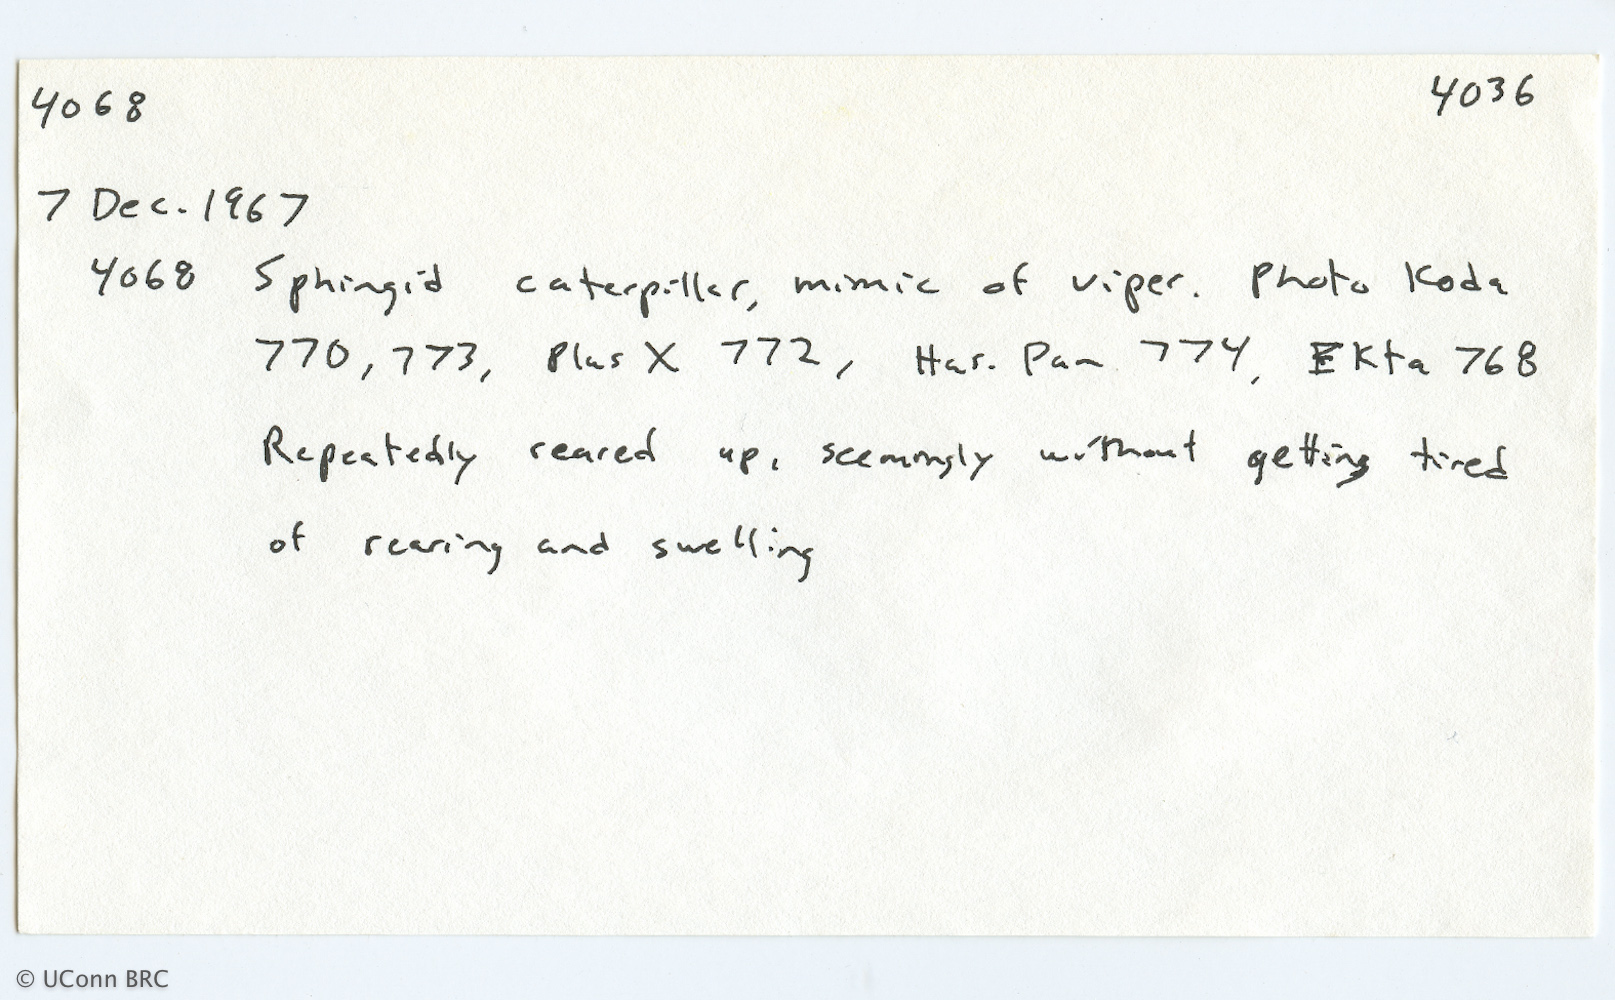 4068 4036
7 Dec. 1967
4068 Sphingid caterpillar, mimic of viper. Photo Koda
770, 773, Plus X 772, Has. Pan 774, EKta 768
Repeatedly reared up, seemingly without getting tired
of rearing and swelling
© UConn BRC